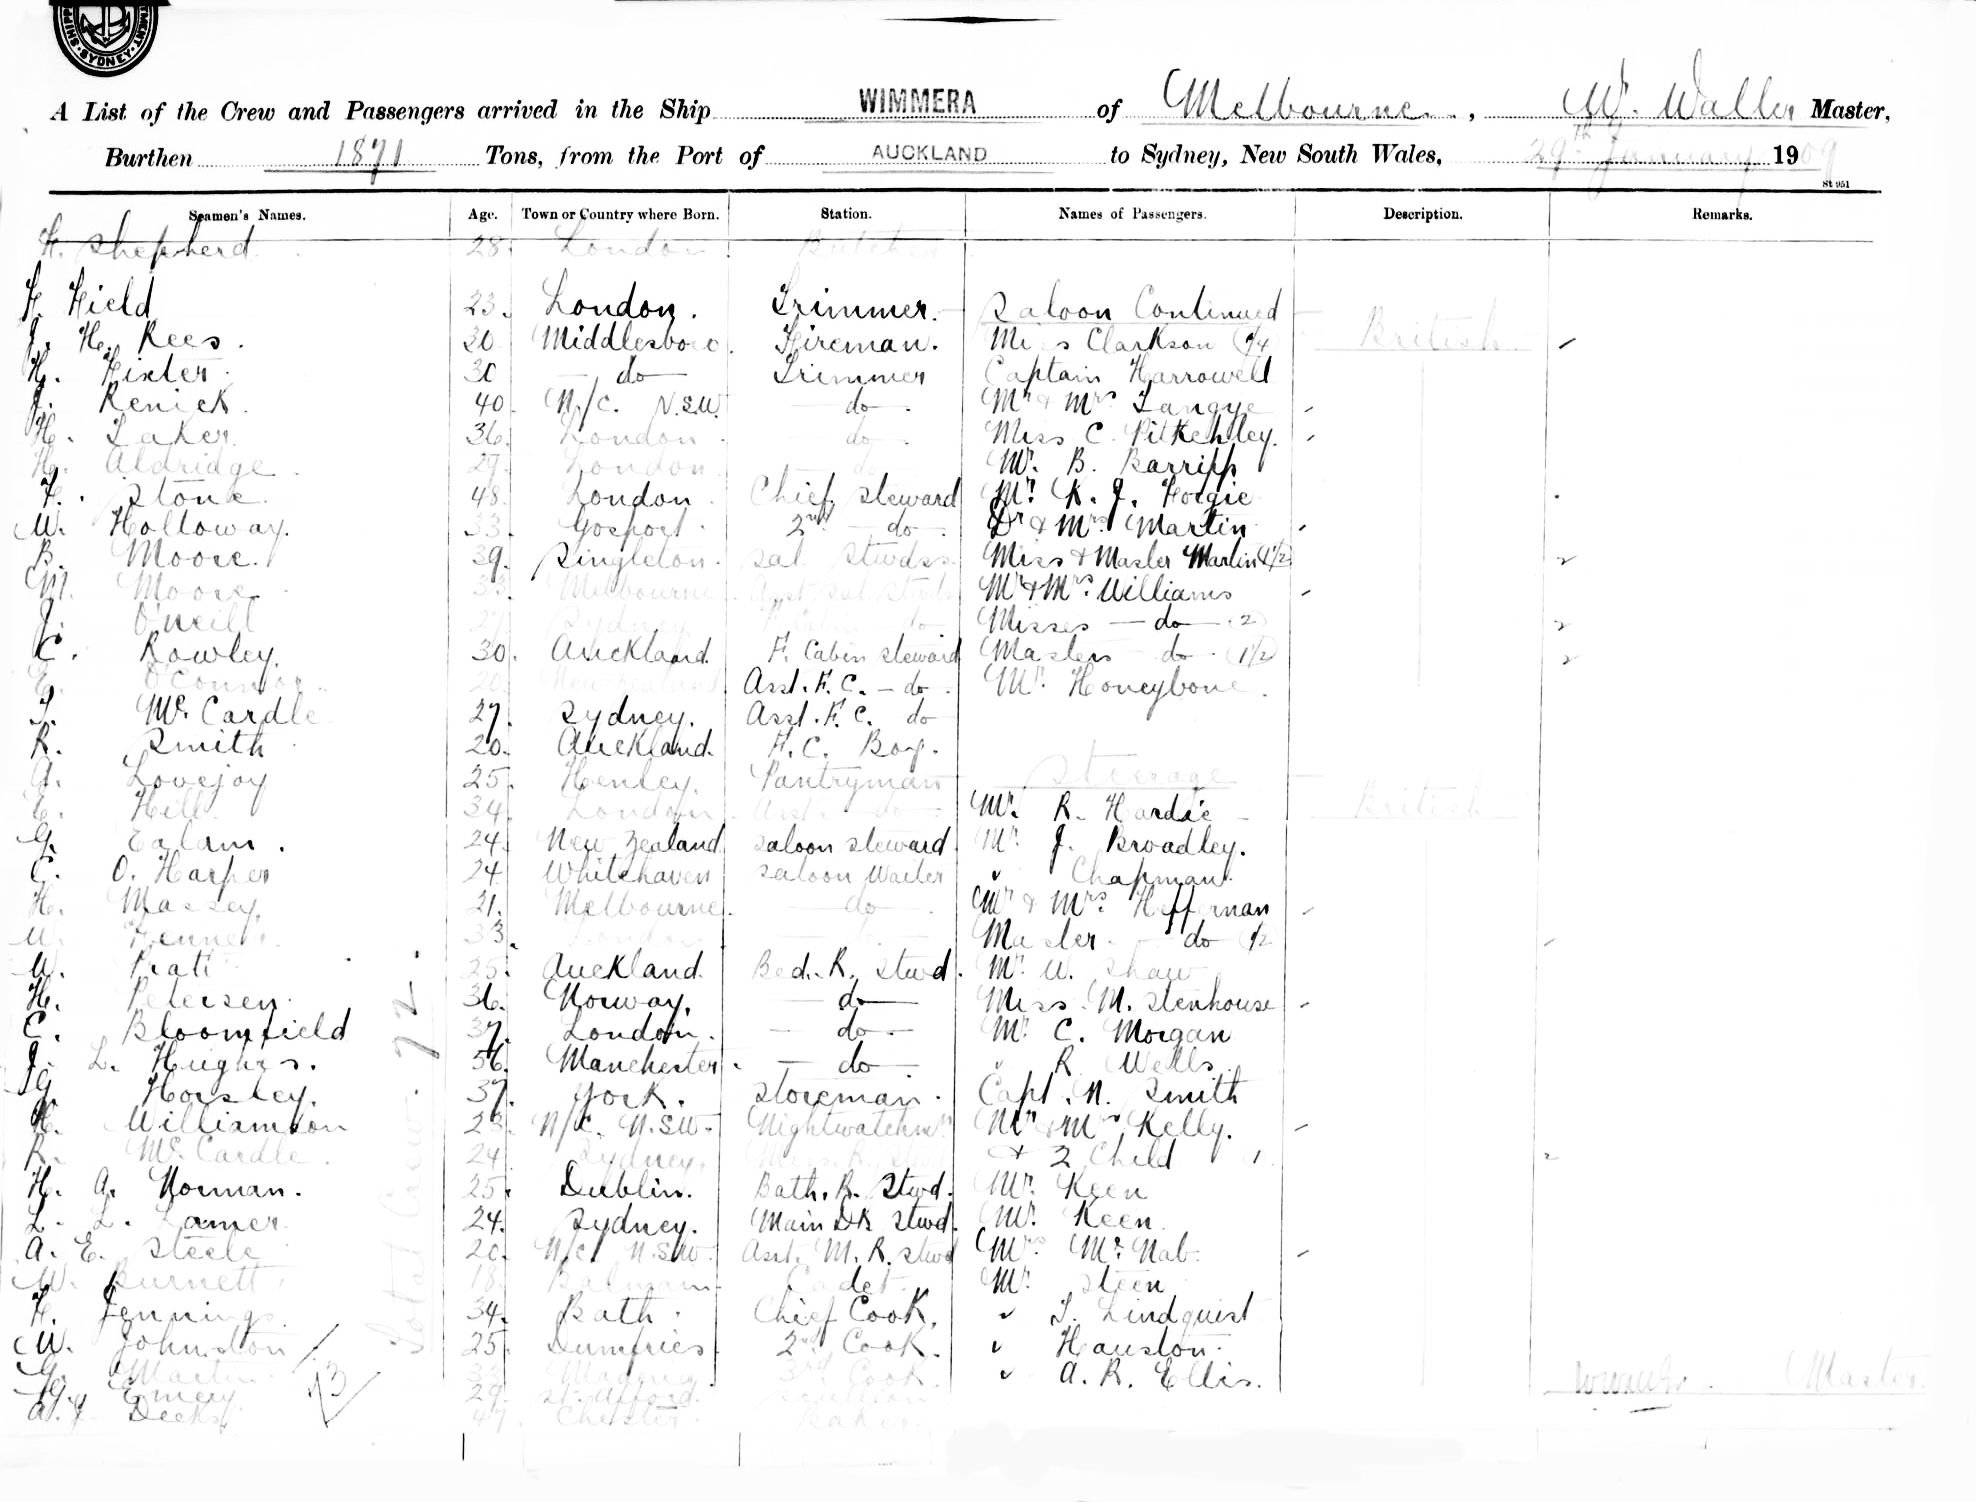 SHIP MENT. SYDNEY.
A List of the Crew and Passengers arrived in the Ship WIMMERA of Melbourne, W. Waller Master,
Burthen 1871 Tons, from the Port of AUCKLAND to Sydney, New South Wales, 29th January 1909
St 951
Seamen's Names. Age. Town or Country where Born. Station. Names of Passengers. Description. Remarks.
H. Shepherd 28. London Butcher
F. Field 23. London. Trimmer. Saloon Continued
J. H. Rees. 30 Middlesboro. Fireman. Miss Clarkson (1/4) British
H. Fixter. 30 do Trimmer Captain Harrowell
J. Renick. 40. N/C. N.S.W. do. Mr & Mrs Tangye
H. Laker. 36. London do. Miss C. Pitkethley.
H. Aldridge. 29. London do Mr. B. Barripp
F. Stone. 48. London. Chief Steward Mr. K. J.
W. Holloway. 33. Gosport. 2nd do. Dr & Mrs. Martin
B. Moore. 39. Singleton. Sal. Stwdss. Miss & Master Martin (1/2)
M. Moore. 33. Melbourne Asst Sal Stwds Mr & Mrs. Williams
J. O'Neill 27 Sydney do Misses do (2)
C. Rowley. 30. Auckland. F. Cabin Steward Masters do. (1/2)
E. O'Connor. 20. New Zealand Asst. F. C. do. Mr. Honeybone.
J. McCardle 27. Sydney. Asst. F. C. do
R. Smith 20. Auckland. F. C. Boy.
A. Lovejoy 25. Henley. Pantryman Steerage
E. Hill 34. London. Asst. do Mr. R. Hardie British
G. Ealam. 24. New Zealand Saloon Steward. Mr. J. Broadley.
C. O. Harper 24. Whitehaven Saloon Waiter " Chapman.
H. Massey. 21. Melbourne. do. Mr & Mrs. Heffernan
W. 33. London do Master do 1/2
W. Pratt 25. Auckland. Bed. R. Stwd. Mr. W. Shaw
H. Petersen. 36. Norway. do Miss M. Stenhouse
C. Bloomfield 37. London. do Mr. C. Morgan
J. L. Hughes. 56. Manchester. do " R. Wells.
G. Horsley. 37. York. Storeman. Capt. N. Smith
H. Williamson 23. N/C. N.S.W. Nightwatchmn. Mr & Mrs Kelly.
R. McCardle. 24. Sydney. Mess. R. Stwd & 2 Child 1
H. A. Norman. 25. Dublin. Bath. R. Stwd. Mr. Keen
L. L. Lamer. 24. Sydney. Main Dk Stwd. Mr. Keen.
A. E. Steele 20. N/C. N.S.W. Asst. M. R. Stwd Mrs McNab.
W. Burnett 18. Balmain Cadet. Mr. Steen
H. Jennings. 34. Bath. Chief Cook. " T. Lindquist
W. Johnston 25. Dumfries 2nd Cook. " Hauston.
G. Martin. 33. 3rd Cook. " A. R. Ellis.
G. Emery. 29. Scullion Master
A. J. Deeks 47. Chester. Baker
Total Crew. 72.
73